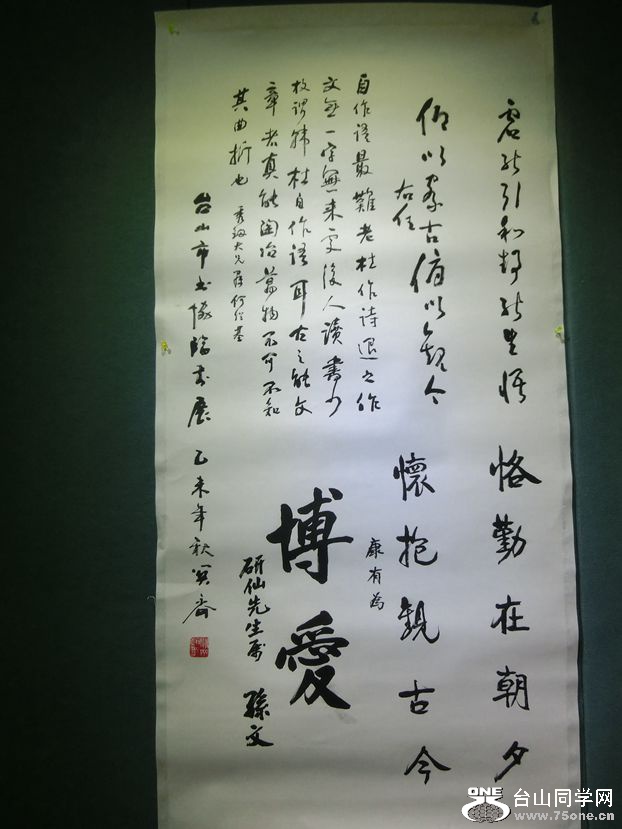 虛能引和靜能生悟
仰以察古俯以觀今
右任
恪勤在朝夕
懷抱觀古今
康有為
自作語最難老杜作詩退之作
文無一字無来處後人讀書少
故謂韩杜自作語耳古之能文
章者真能陶冶萬物不可不知
其曲折也
大兄屬何紹基
博愛
研仙先生属
孫文
台山市书协临书展 乙未年秋
ONE
台山同学网
www.75one.cn